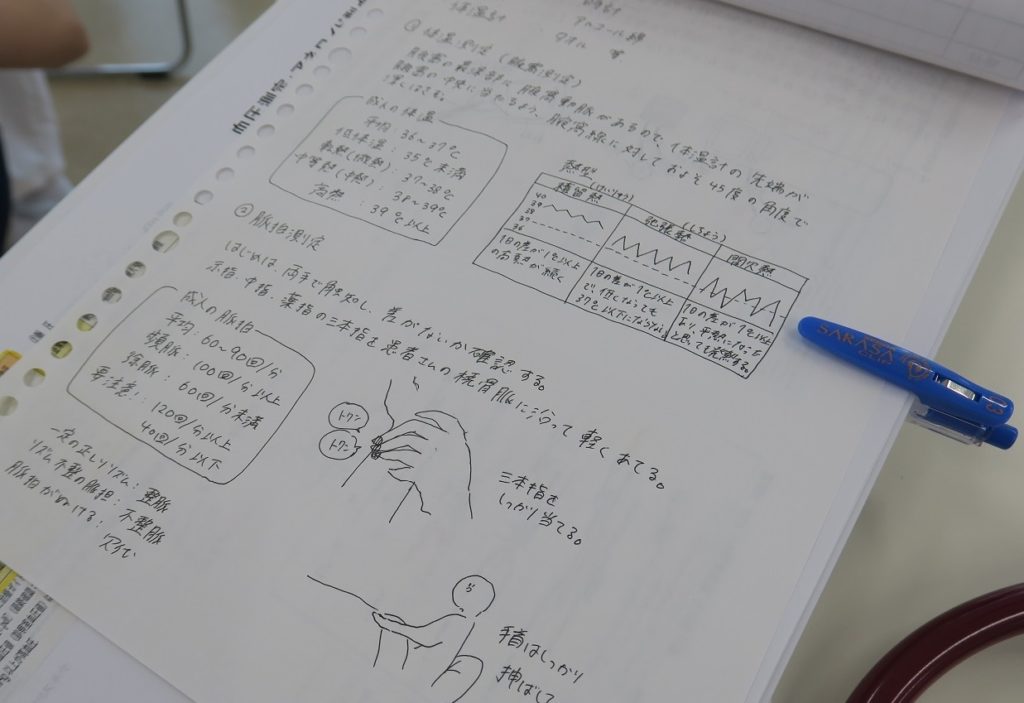 体温計
アルコール綿
タオル 等
① 体温測定(腋窩測定)
腋窩の最深部に腋窩動脈があるので、体温計の先端が
腋窩の中央に当たるよう、腋窩線に対しておよそ45度の角度で
深くはさむ。
成人の体温
平均：36～37℃
低体温：35℃未満
軽熱(微熱)：37～38℃
中等熱(中熱)：38～39℃
高熱：39℃以上
熱型
(けいりゅう)
稽留熱
(しちょう)
弛張熱
間欠熱
40
39
38
37
36
1日の差が1℃以上
の高熱が続く
1日の差が1℃以上
で、低くなっても
37℃以下にならない
1日の差が1℃以上
あり、平熱になった
と思っても発熱する。
② 脈拍測定
はじめは、両手で触知し、差がないか確認する。
示指・中指・薬指の三本指を患者さんの橈骨脈に沿って軽くあてる。
成人の脈拍
平均：60～90回/分
頻脈：100回/分以上
徐脈：60回/分未満
要注意！：120回/分以上
40回/分以下
一定の正しいリズム：整脈
リズム不整の脈拍：不整脈
脈拍がぬける：欠代
トクン
トクン
三本指を
しっかり当てる。
手首はしっかり
伸ばして
SARASA
CLIP